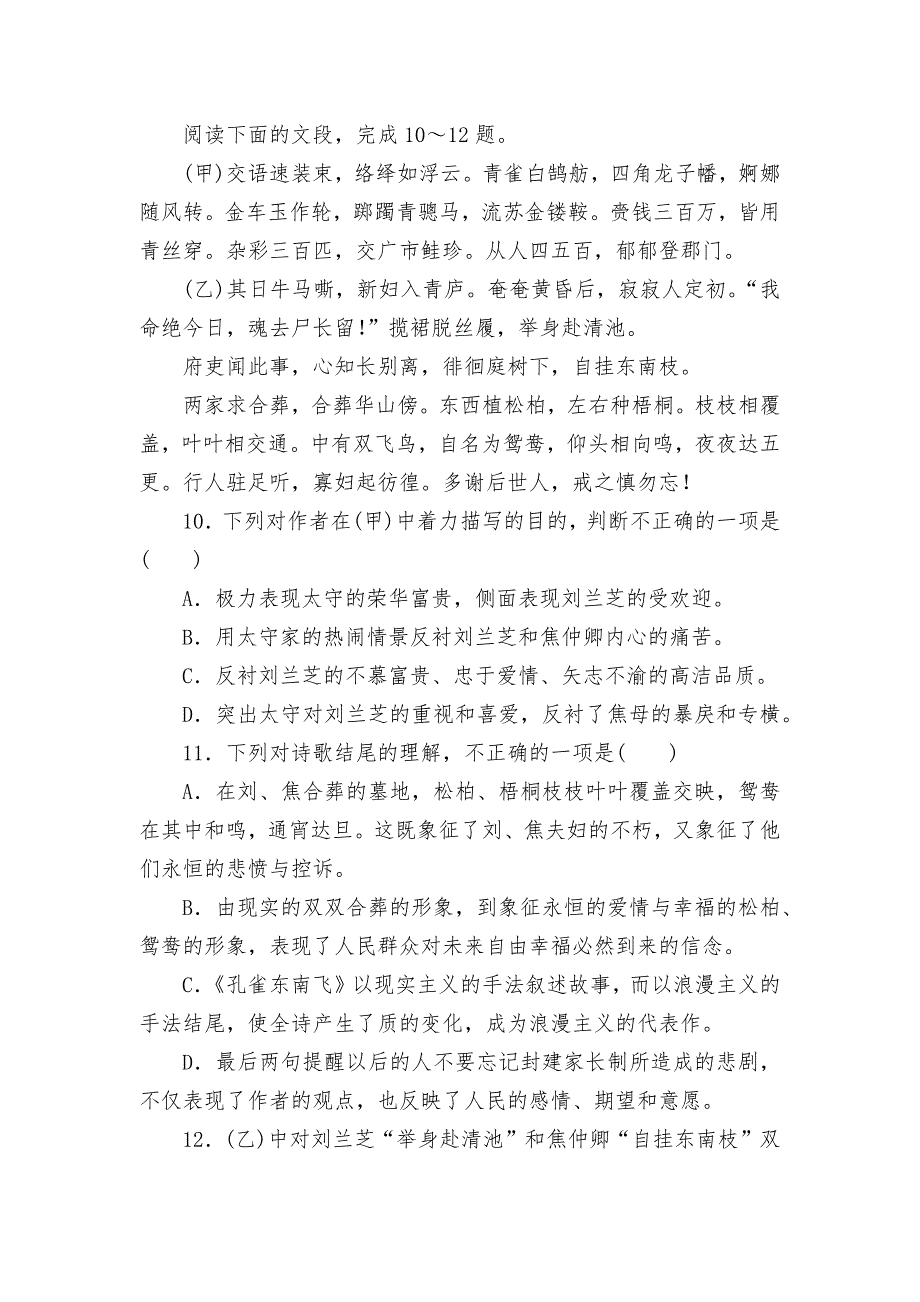 阅读下面的文段，完成10～12题。
(甲)交语速装束，络绎如浮云。青雀白鹄舫，四角龙子幡，婀娜
随风转。金车玉作轮，踯躅青骢马，流苏金镂鞍。赍钱三百万，皆用
青丝穿。杂彩三百匹，交广市鲑珍。从人四五百，郁郁登郡门。
(乙)其日牛马嘶，新妇入青庐。奄奄黄昏后，寂寂人定初。“我
命绝今日，魂去尸长留！”揽裙脱丝履，举身赴清池。
府吏闻此事，心知长别离，徘徊庭树下，自挂东南枝。
两家求合葬，合葬华山傍。东西植松柏，左右种梧桐。枝枝相覆
盖，叶叶相交通。中有双飞鸟，自名为鸳鸯，仰头相向鸣，夜夜达五
更。行人驻足听，寡妇起彷徨。多谢后世人，戒之慎勿忘！
10．下列对作者在(甲)中着力描写的目的，判断不正确的一项是
(　　)
A．极力表现太守的荣华富贵，侧面表现刘兰芝的受欢迎。
B．用太守家的热闹情景反衬刘兰芝和焦仲卿内心的痛苦。
C．反衬刘兰芝的不慕富贵、忠于爱情、矢志不渝的高洁品质。
D．突出太守对刘兰芝的重视和喜爱，反衬了焦母的暴戾和专横。
11．下列对诗歌结尾的理解，不正确的一项是(　　)
A．在刘、焦合葬的墓地，松柏、梧桐枝枝叶叶覆盖交映，鸳鸯
在其中和鸣，通宵达旦。这既象征了刘、焦夫妇的不朽，又象征了他
们永恒的悲愤与控诉。
B．由现实的双双合葬的形象，到象征永恒的爱情与幸福的松柏、
鸳鸯的形象，表现了人民群众对未来自由幸福必然到来的信念。
C．《孔雀东南飞》以现实主义的手法叙述故事，而以浪漫主义的
手法结尾，使全诗产生了质的变化，成为浪漫主义的代表作。
D．最后两句提醒以后的人不要忘记封建家长制所造成的悲剧，
不仅表现了作者的观点，也反映了人民的感情、期望和意愿。
12．(乙)中对刘兰芝“举身赴清池”和焦仲卿“自挂东南枝”双